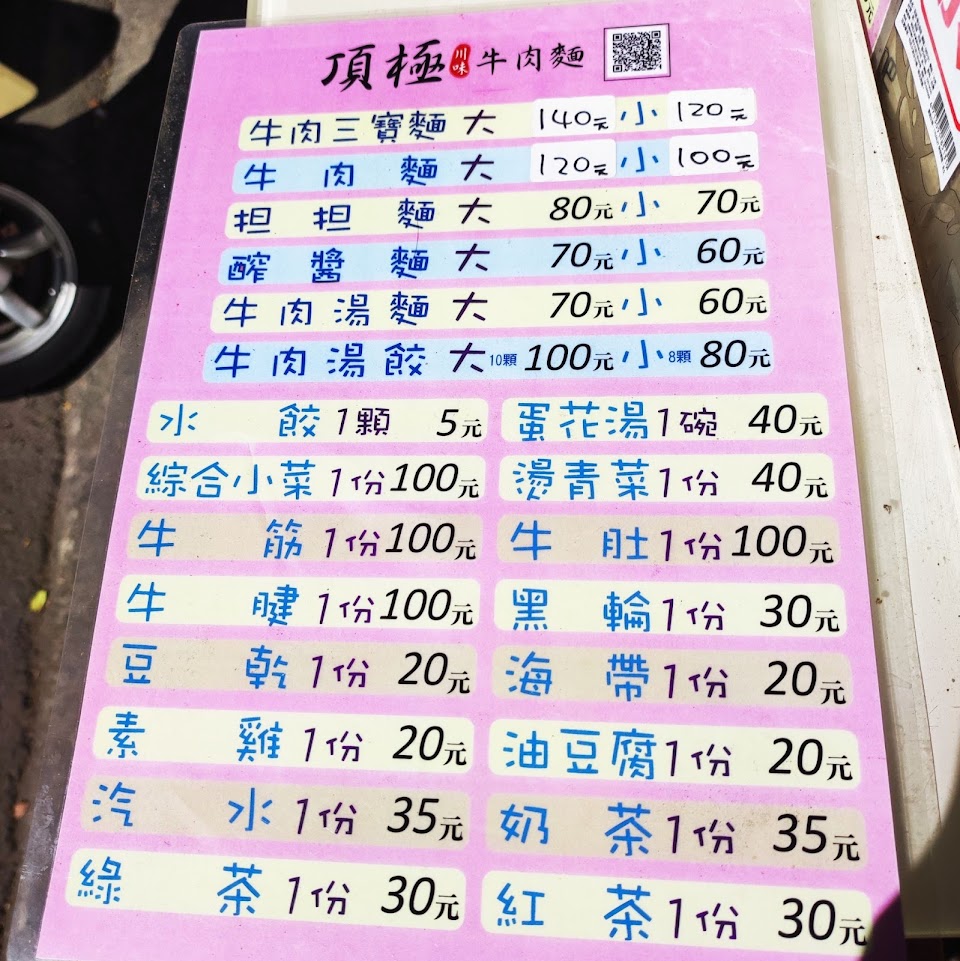 頂極川味牛肉麵
牛肉三寶麵 大 140元 小 120元
牛肉麵 大 120元 小 100元
担担麵 大 80元 小 70元
醡醬麵 大 70元 小 60元
牛肉湯麵 大 70元 小 60元
牛肉湯餃 大 10顆 100元 小 8顆 80元
水餃 1顆 5元 蛋花湯 1碗 40元
綜合小菜 1份 100元 燙青菜 1份 40元
牛筋 1份 100元 牛肚 1份 100元
牛腱 1份 100元 黑輪 1份 30元
豆乾 1份 20元 海帶 1份 20元
素雞 1份 20元 油豆腐 1份 20元
汽水 1份 35元 奶茶 1份 35元
綠茶 1份 30元 紅茶 1份 30元